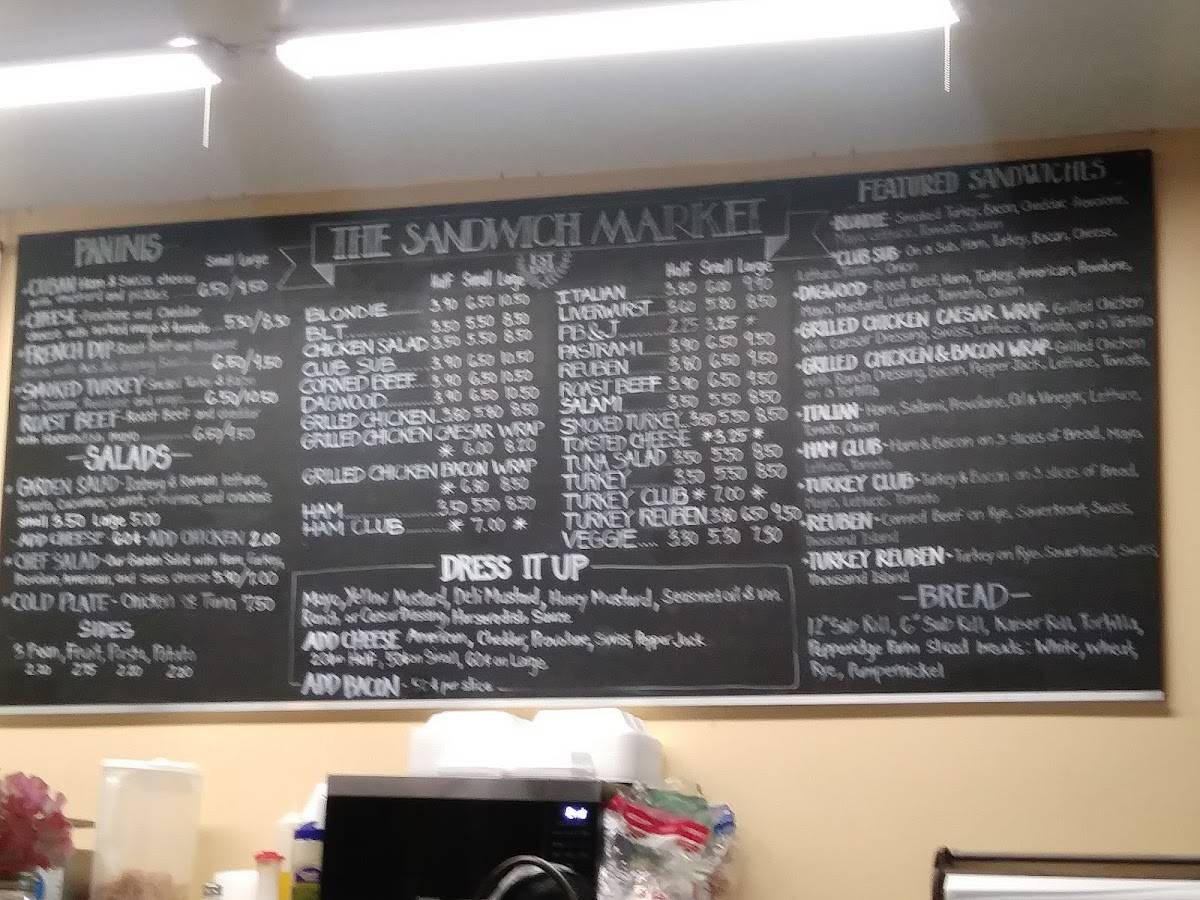 THE SANDWICH MARKET
EST
PANINIS
Small Large
CUBAN Ham & Swiss cheese
with mustard and pickles 6.50/9.50
CHEESE - Provolone and Cheddar
cheese with mayo & tomato 5.50/8.50
FRENCH DIP - Roast Beef and Provolone
6.50/9.50
SMOKED TURKEY Smoked Turkey & Bacon
6.50/10.50
ROAST BEEF - Roast Beef and cheddar
with Mayo 6.50/9.50
- SALADS -
GARDEN SALAD - Iceberg & Romaine lettuce,
Tomato, Cucumber, Carrot, and crackers
small 3.50 Large 5.00
ADD CHEESE 60¢ - ADD CHICKEN 2.00
CHEF SALAD - Our Garden Salad with Ham, Turkey,
Provolone, American, and Swiss cheese 5.90/7.00
COLD PLATE - Chicken or Tuna 7.50
SIDES
3 Bean, Fruit, Pasta, Potato
2.20 2.75 2.20 2.20
Half Small Large
BLONDIE 3.90 6.50 10.50
BLT 3.50 5.50 8.50
CHICKEN SALAD 3.50 5.50 8.50
CLUB SUB 3.90 6.50 10.50
CORNED BEEF 3.90 6.50 10.50
DAGWOOD 3.90 6.50 10.50
GRILLED CHICKEN 3.80 5.80 8.50
GRILLED CHICKEN CAESAR WRAP
* 6.00 8.20
GRILLED CHICKEN BACON WRAP
* 6.80 8.50
HAM 3.50 5.50 8.50
HAM CLUB * 7.00 *
Half Small Large
ITALIAN 3.80 6.60 9.90
LIVERWURST 3.60 5.80 8.50
PB & J 2.25 3.25 *
PASTRAMI 3.90 6.50 9.50
REUBEN 3.80 6.50 9.50
ROAST BEEF 3.90 6.50 9.50
SALAMI 3.50 5.50 8.50
SMOKED TURKEY 3.50 5.50 8.50
TOASTED CHEESE * 3.25 *
TUNA SALAD 3.50 5.50 8.50
TURKEY 3.50 5.50 8.50
TURKEY CLUB * 7.00 *
TURKEY REUBEN 3.80 6.50 9.50
VEGGIE.... 3.30 5.30 7.50
DRESS IT UP
Mayo, Yellow Mustard, Deli Mustard, Honey Mustard, Seasoned oil & vin.
Ranch or Caesar Dressing, Horseradish Sauce
ADD CHEESE American, Cheddar, Provolone, Swiss, Pepper Jack
Half, Small, 60¢ on Large
ADD BACON - per slice
FEATURED SANDWICHES
BLONDIE - Smoked Turkey, Bacon, Cheddar, Provolone,
Mayo, Lettuce, Tomato, Onion
CLUB SUB - On a Sub, Ham, Turkey, Bacon, Cheese,
Lettuce, Tomato, Onion
DAGWOOD - Roast Beef, Ham, Turkey, American, Provolone,
Mayo, Mustard, Lettuce, Tomato, Onion
GRILLED CHICKEN CAESAR WRAP - Grilled Chicken
with Caesar Dressing, Swiss, Lettuce, Tomato, on a Tortilla
GRILLED CHICKEN & BACON WRAP - Grilled Chicken
with Ranch Dressing, Bacon, Pepper Jack, Lettuce, Tomato,
on a Tortilla
ITALIAN - Ham, Salami, Provolone, Oil & Vinegar, Lettuce,
Tomato, Onion
HAM CLUB - Ham & Bacon on 3 slices of Bread, Mayo
Lettuce, Tomato
TURKEY CLUB - Turkey & Bacon on 3 slices of Bread,
Mayo, Lettuce, Tomato
REUBEN - Corned Beef on Rye, Sauerkraut, Swiss,
Thousand Island
TURKEY REUBEN - Turkey on Rye, Sauerkraut, Swiss,
Thousand Island
- BREAD -
12" Sub Roll, 6" Sub Roll, Kaiser Roll, Tortilla,
Pepperidge Farm sliced breads: White, Wheat,
Rye, Pumpernickel